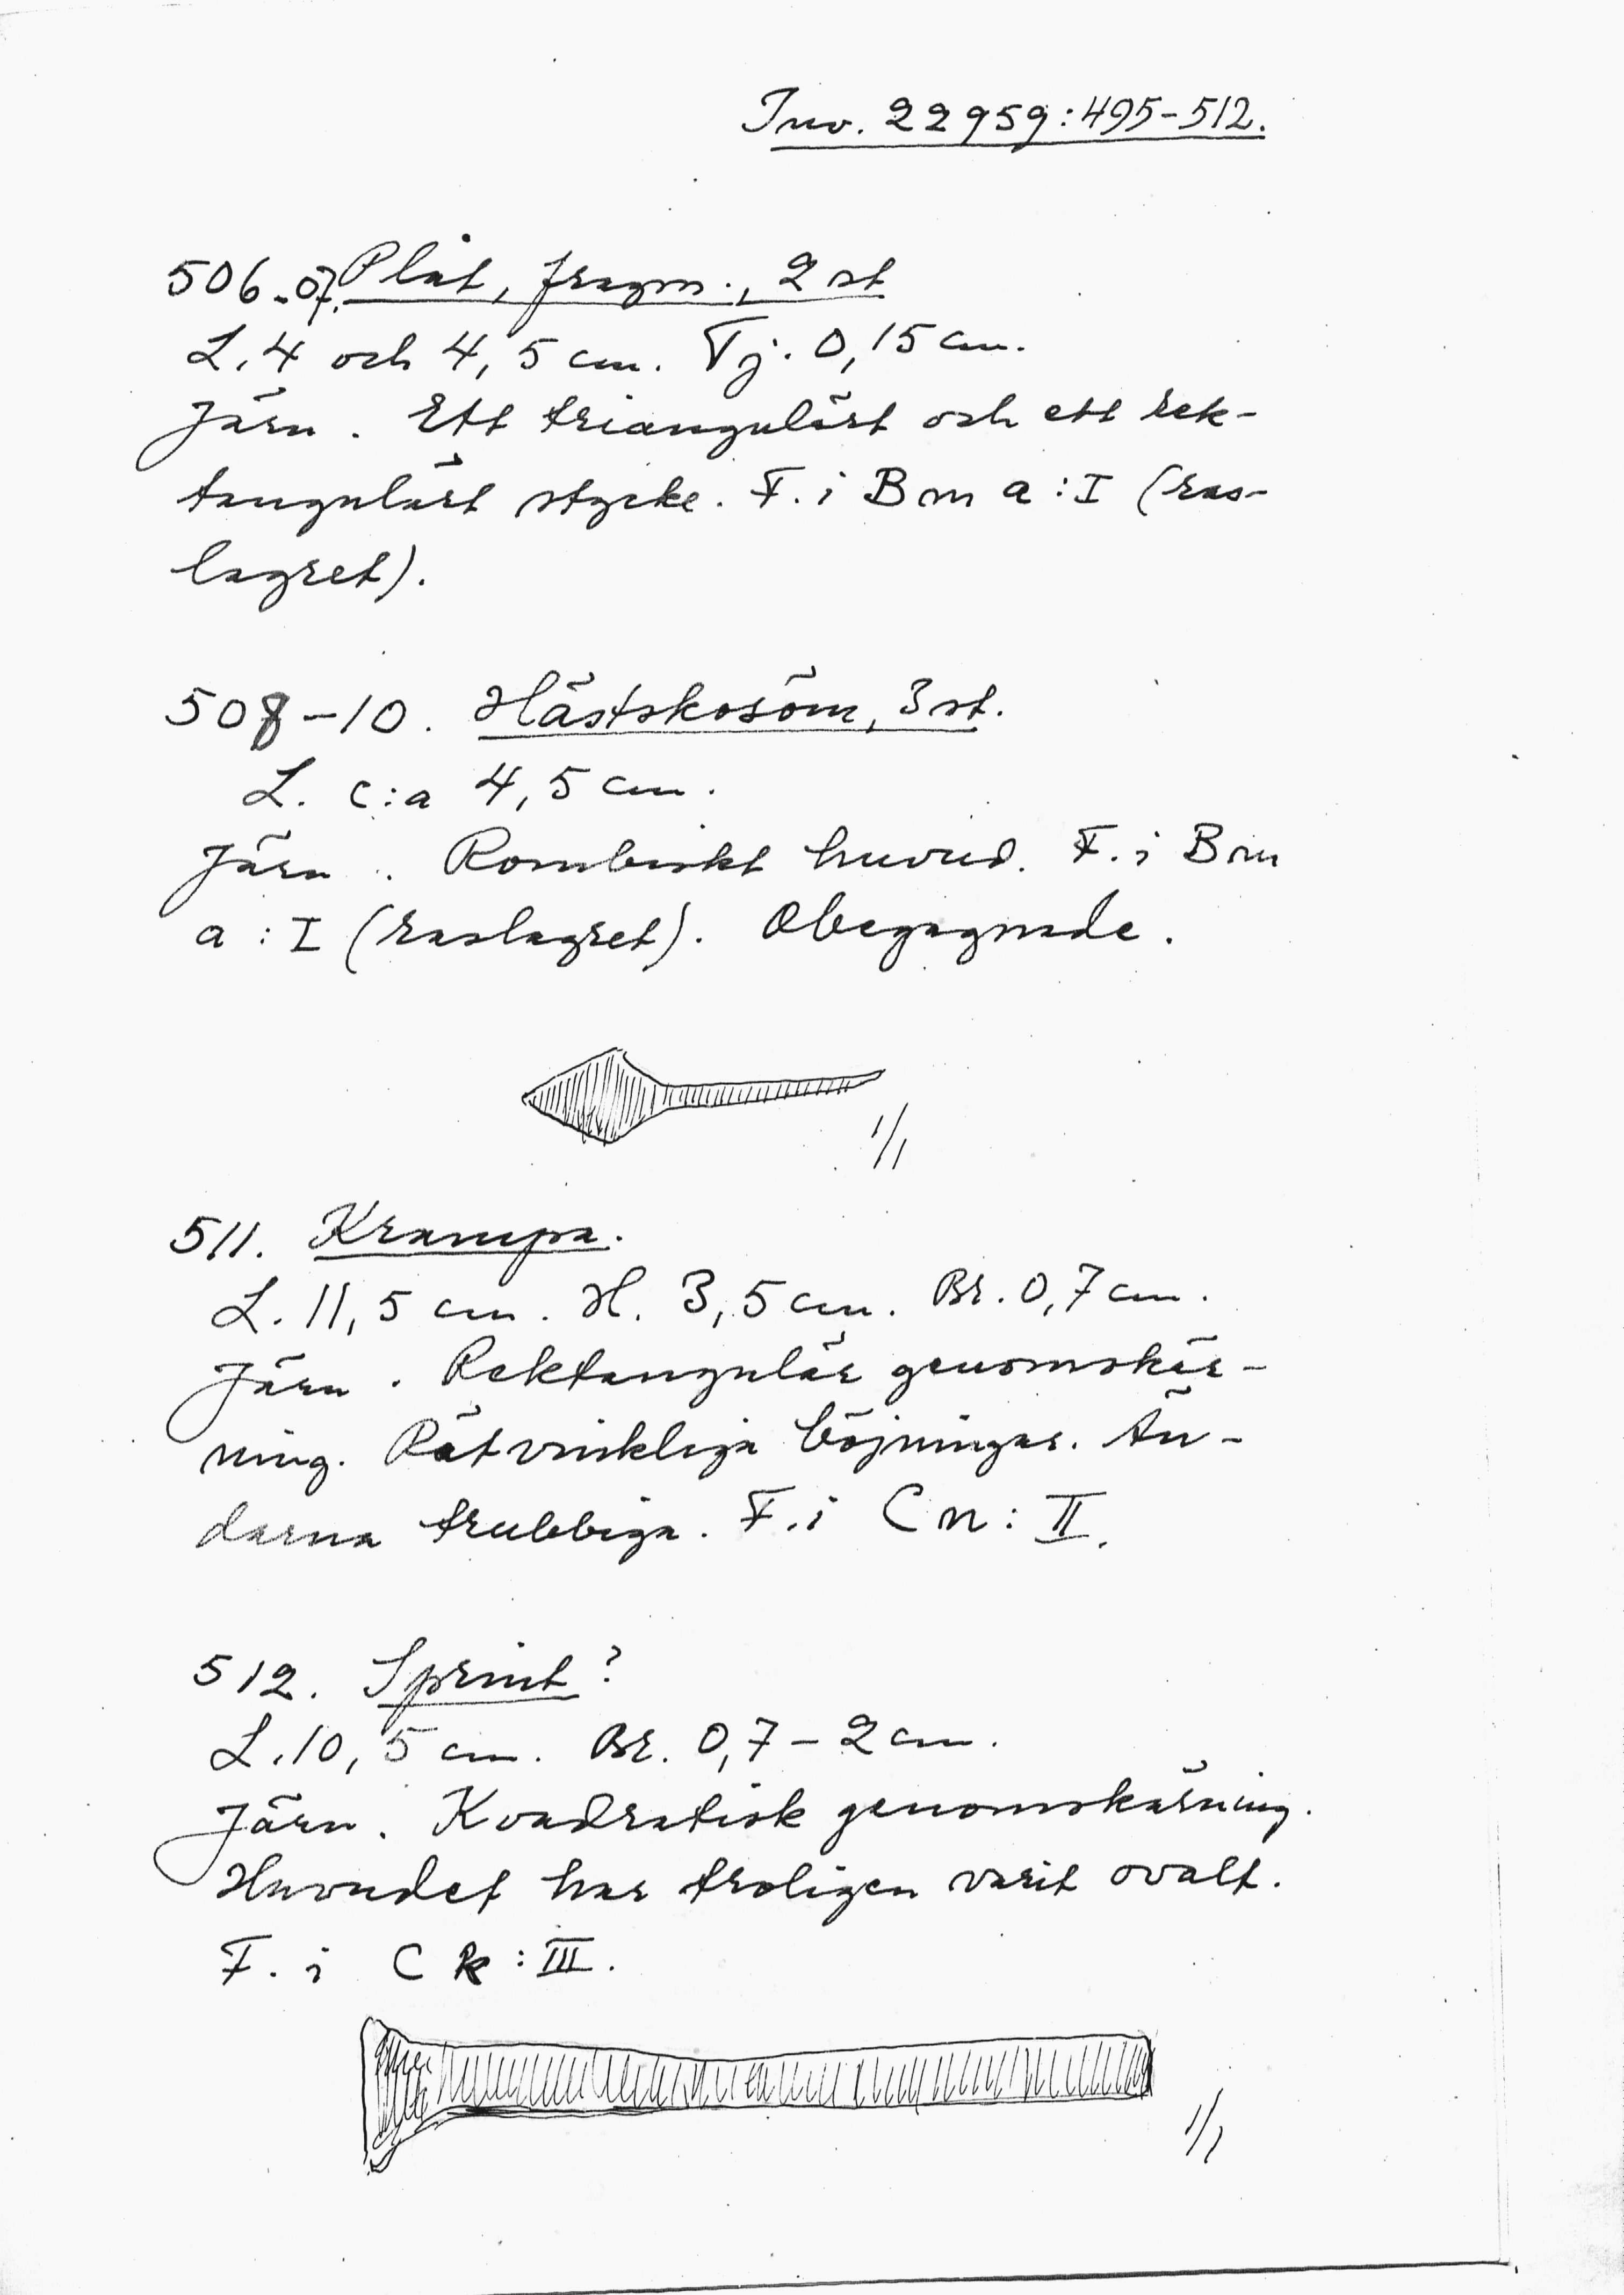 Inv. 22959:495-512.
506-07. Plåt, fragm., 2 st
L. 4 och 4,5 cm. Tj. 0,15 cm.
Järn. Ett triangulärt och ett rek-
tangulärt stycke. F. i B m a : I (ras-
lagret).
508-10. Hästskosöm, 3 st.
L. c:a 4,5 cm.
Järn. Rombiskt huvud. F. i B m
a : I (raslagret). Obegagnade.
1/1
511. Krampa.
L. 11,5 cm. H. 3,5 cm. Br. 0,7 cm.
Järn. Rektangulär genomskär-
ning. Rätvinkliga böjningar. Än-
darna trubbiga. F. i C n : II.
512. Sprint?
L. 10,5 cm. Br. 0,7 - 2 cm.
Järn. Kvadratisk genomskärning.
Huvudet har troligen varit ovalt.
F. i C k : III.
1/1